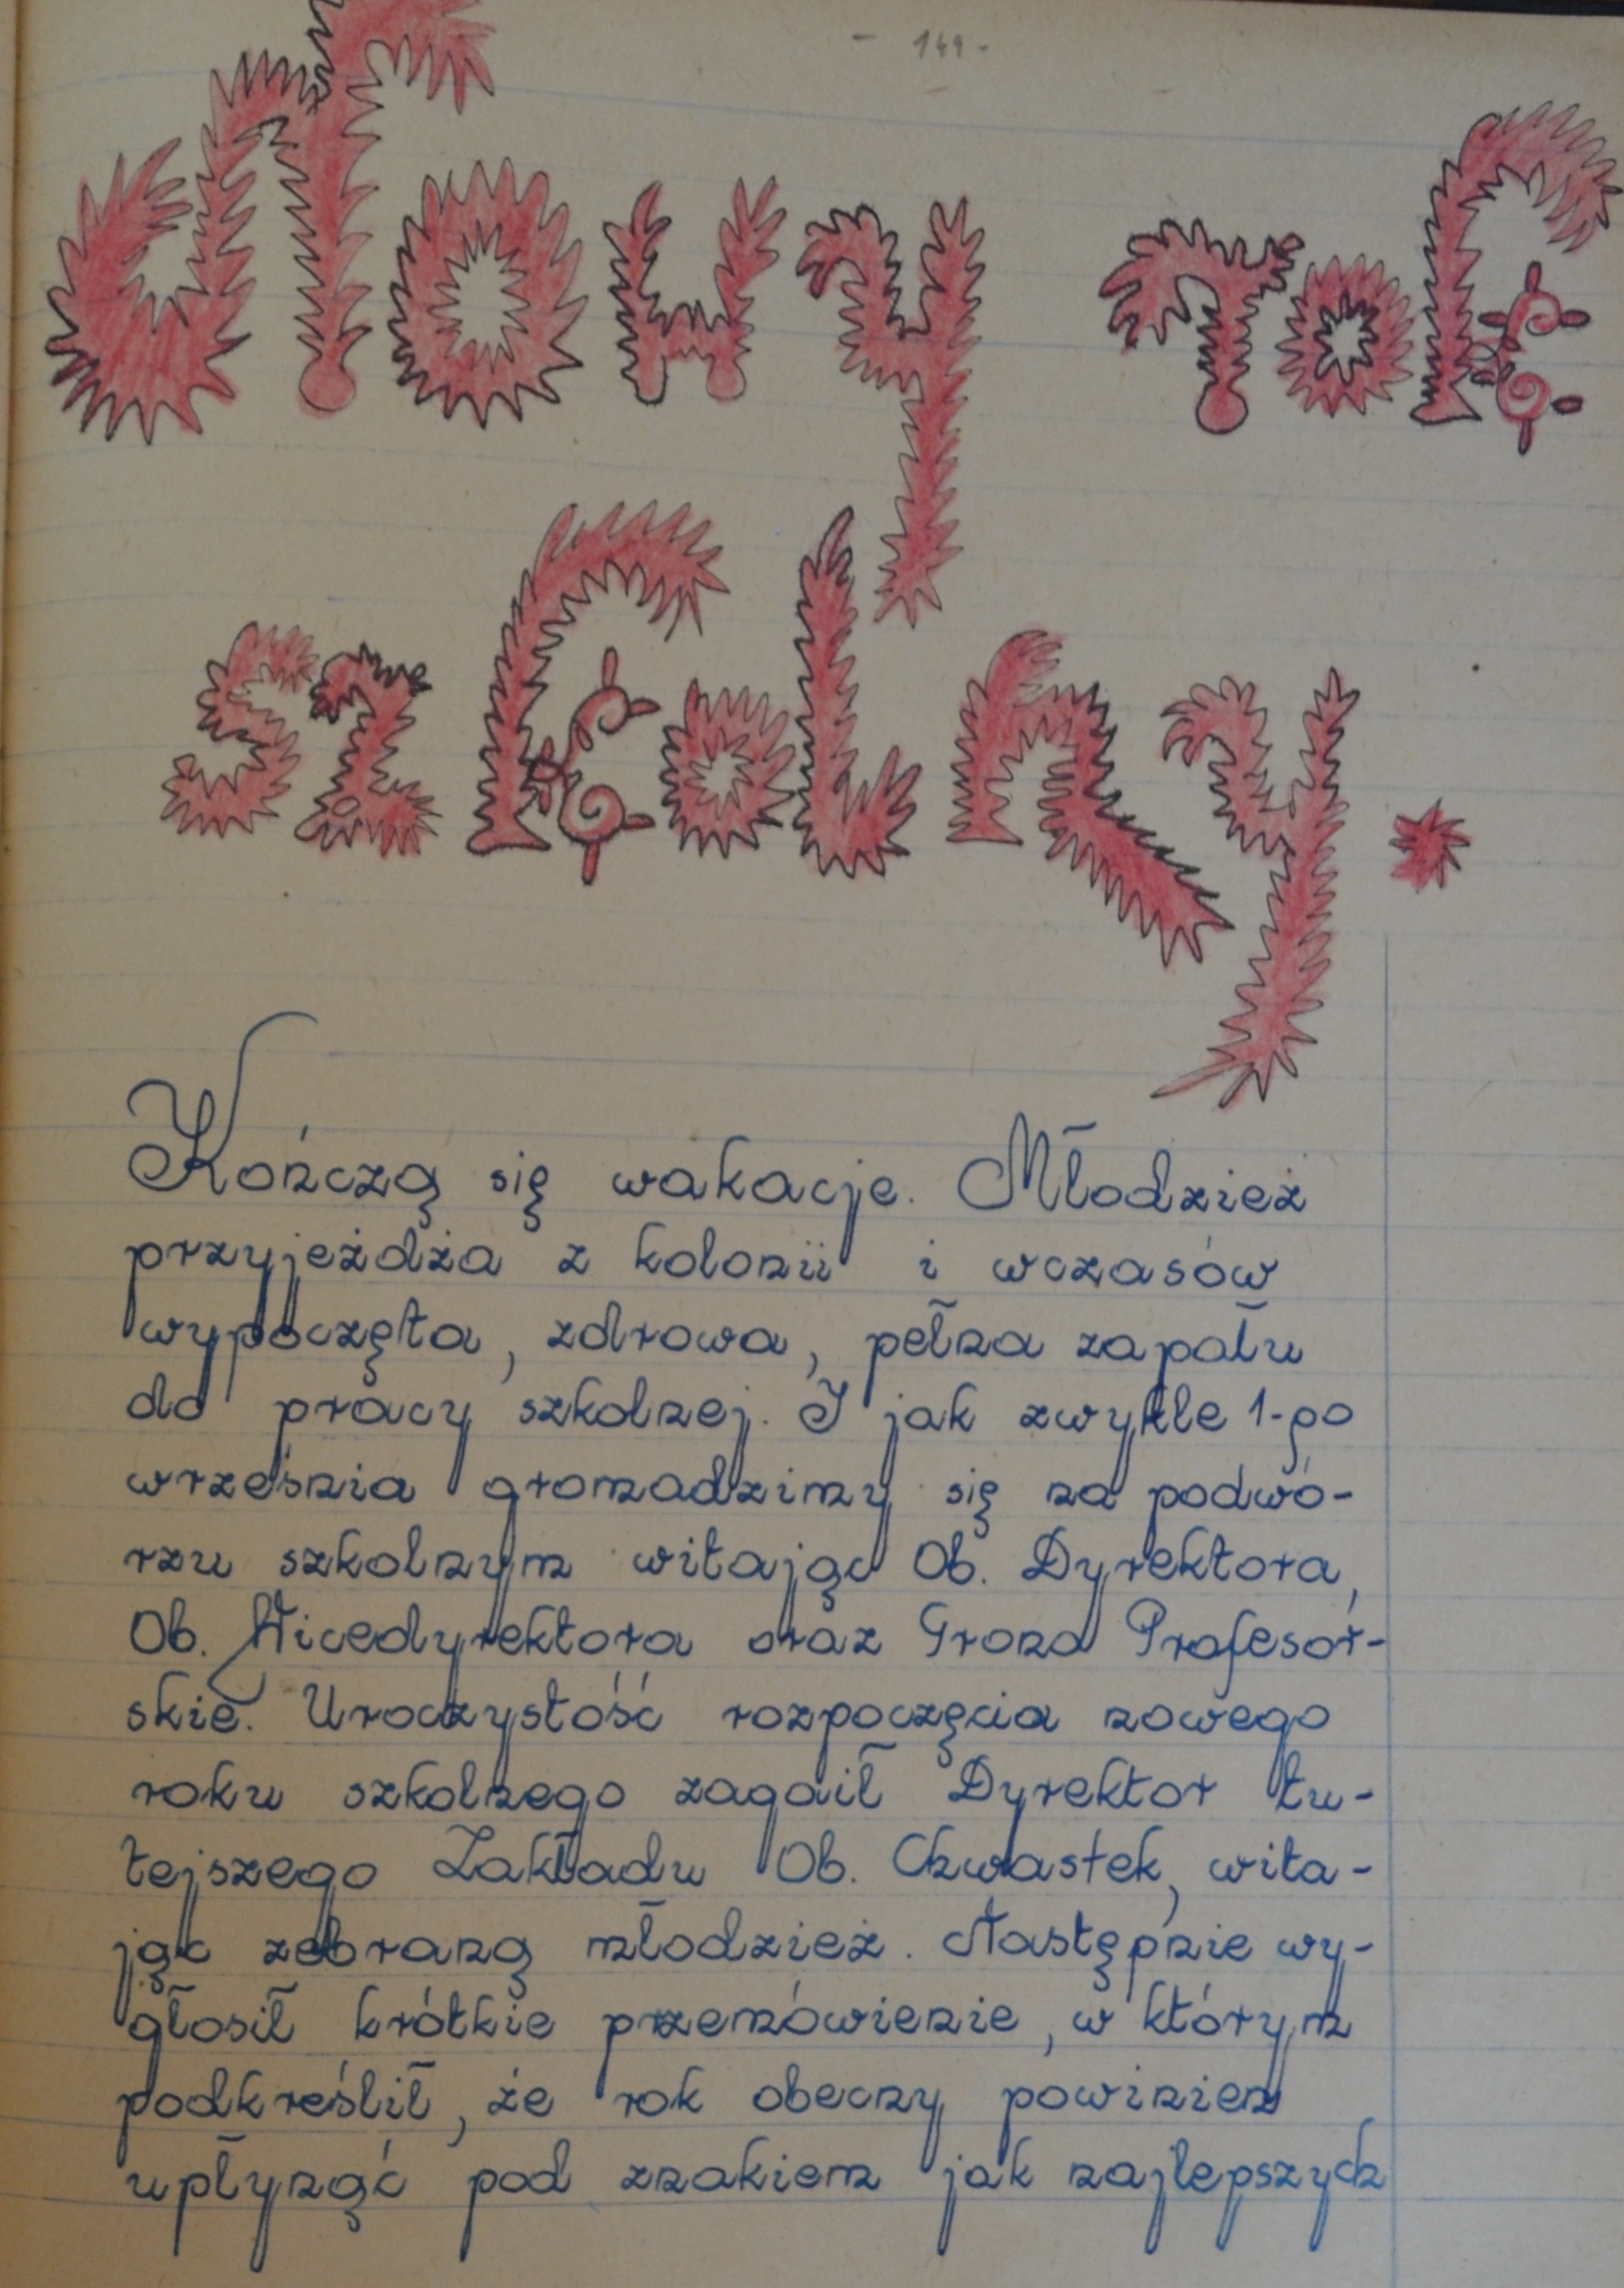 - 149 -
Nowy rok
szkolny.
Kończą się wakacje. Młodzież
przyjeżdża z kolonii i wczasów
wypoczęta, zdrowa, pełna zapału
do pracy szkolnej. I jak zwykle 1-go
września gromadzimy się na podwó-
rzu szkolnym witając Ob. Dyrektora,
Ob. Wicedyrektora oraz Grono Profesor-
skie. Uroczystość rozpoczęcia nowego
roku szkolnego zagaił Dyrektor tu-
tejszego Zakładu Ob. Chwastek, wita-
jąc zebraną młodzież. Następnie wy-
głosił krótkie przemówienie, w którym
podkreślił, że rok obecny powinien
upłynąć pod znakiem jak najlepszych